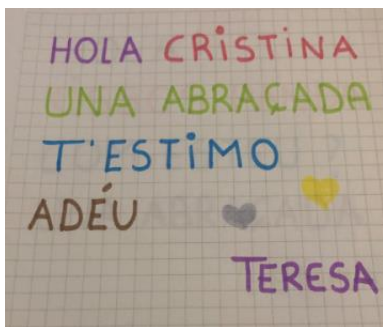 HOLA CRISTINA
UNA ABRAÇADA
T'ESTIMO
ADÉU
TERESA